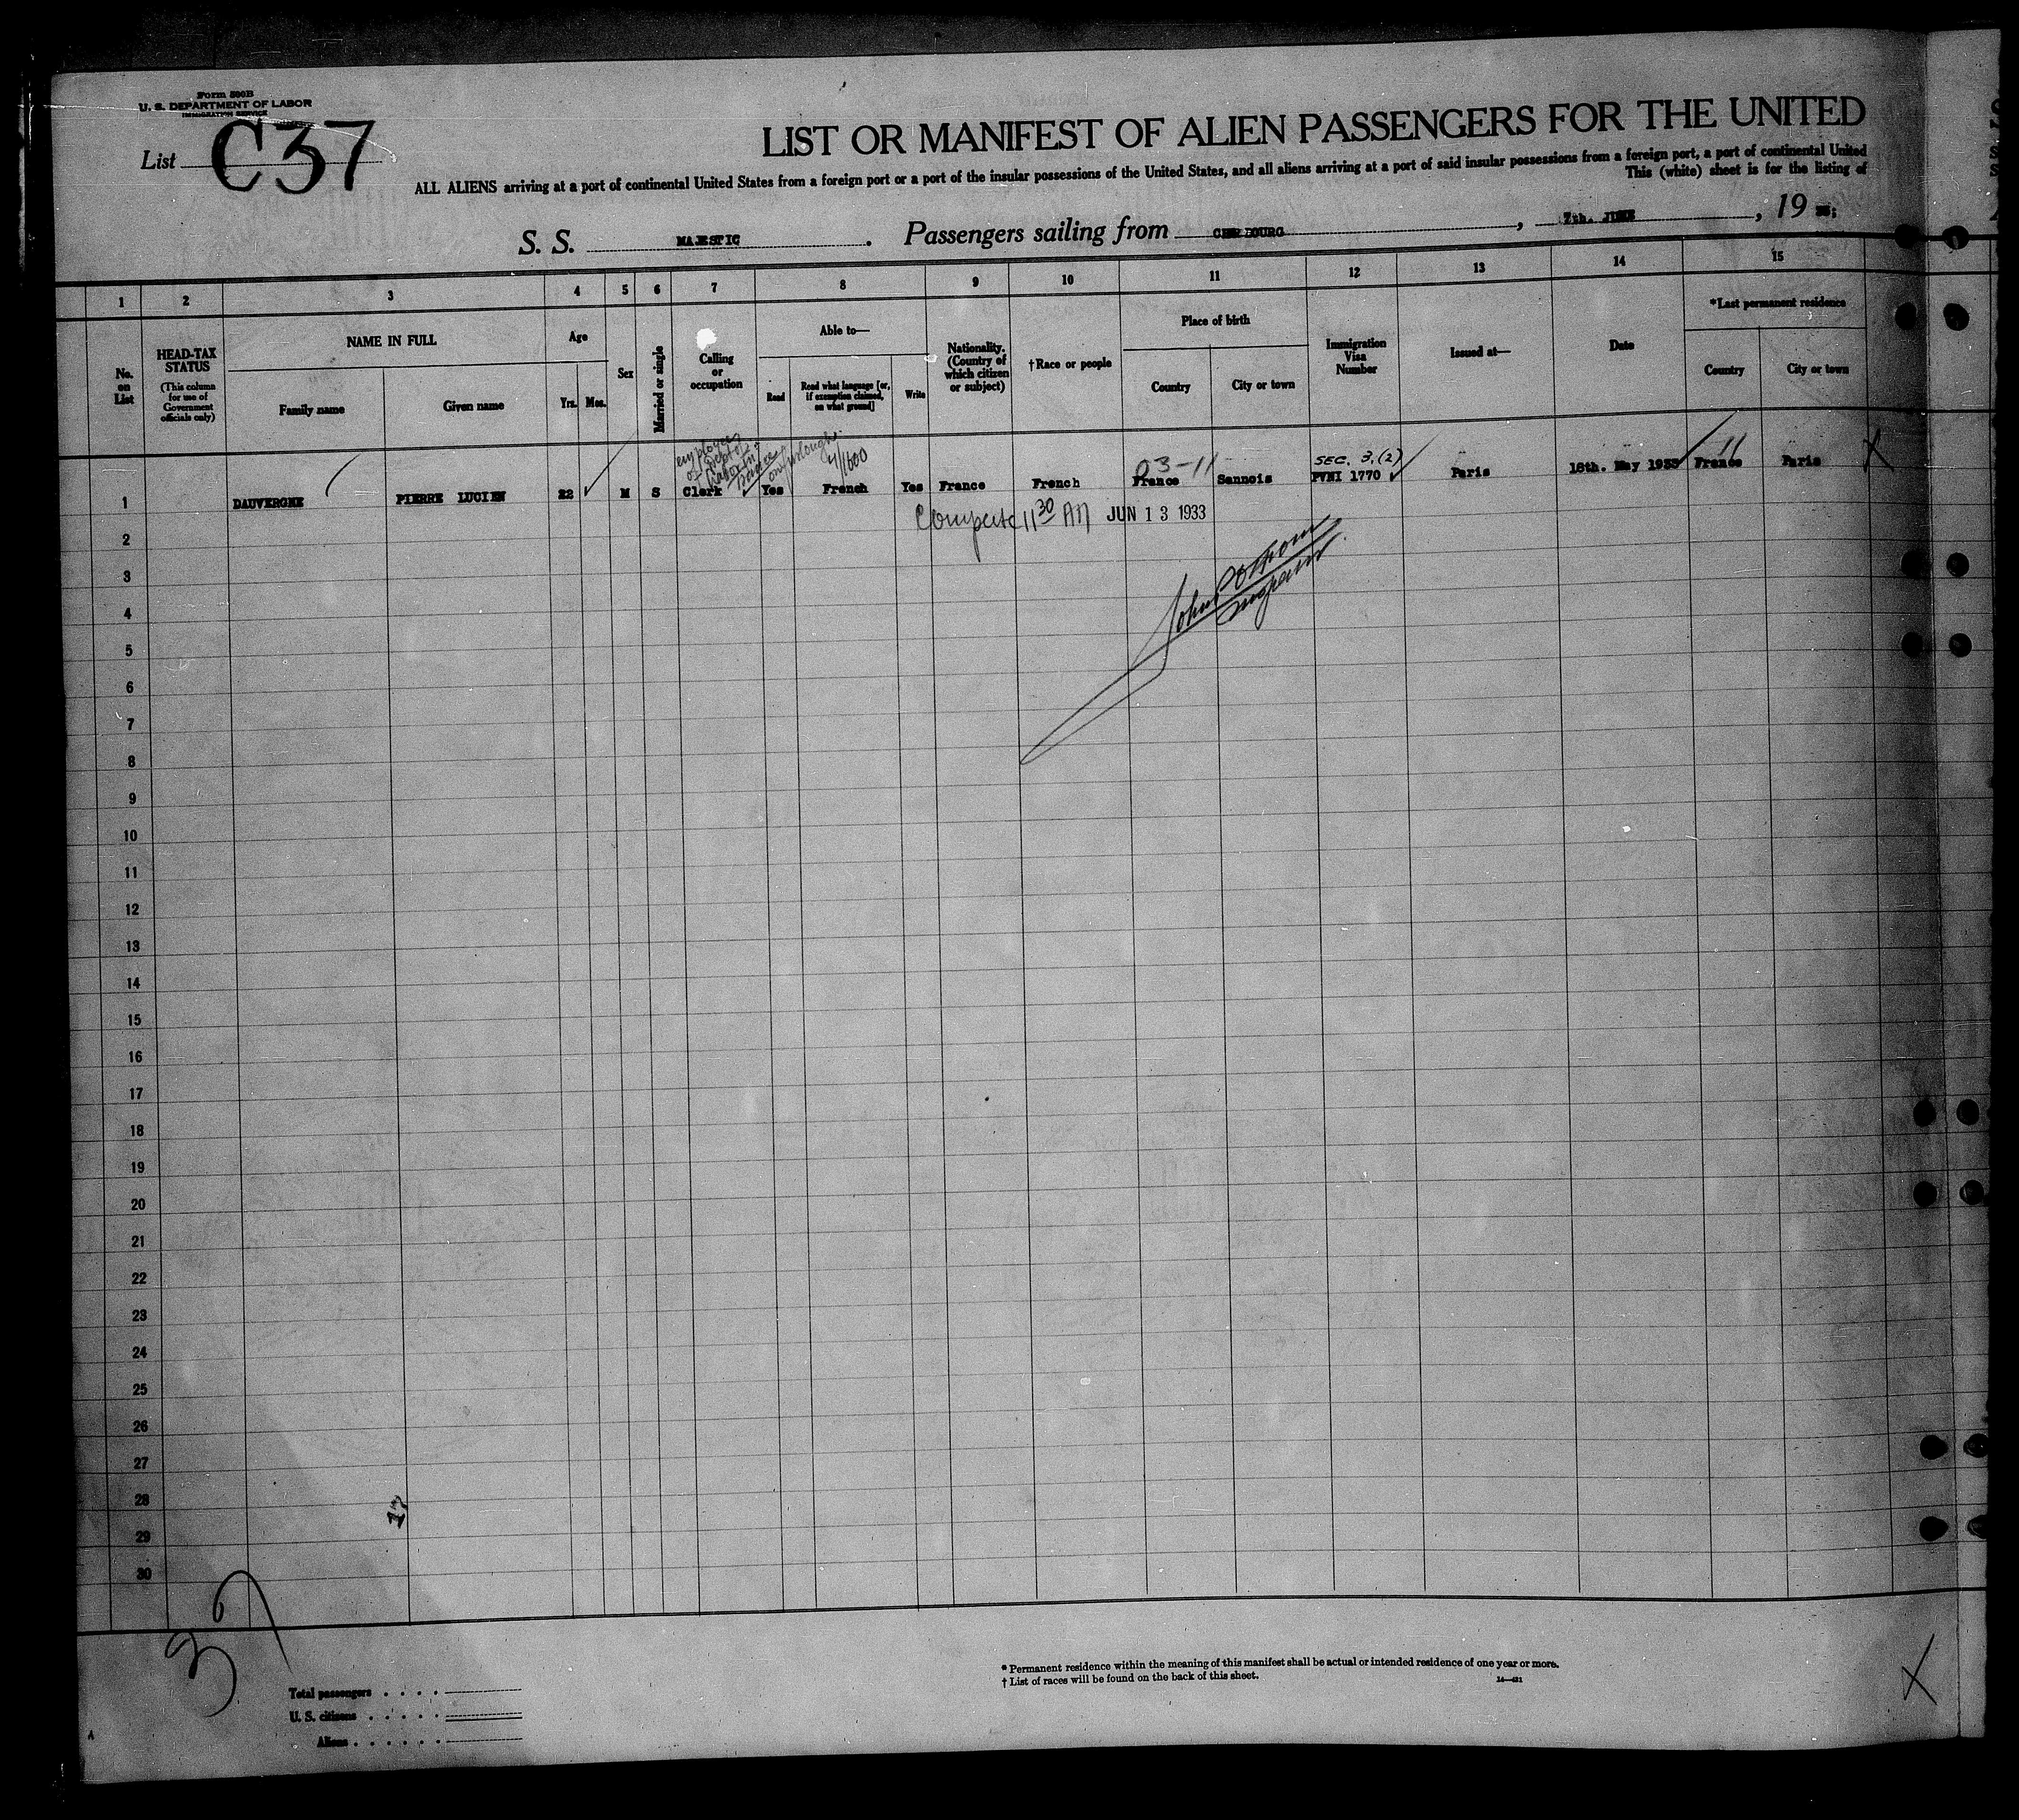 Form 500B
U. S. DEPARTMENT OF LABOR
IMMIGRATION SERVICE
List C37
LIST OR MANIFEST OF ALIEN PASSENGERS FOR THE UNITED
ALL ALIENS arriving at a port of continental United States from a foreign port or a port of the insular possessions of the United States, and all aliens arriving at a port of said insular possessions from a foreign port, a port of continental United
This (white) sheet is for the listing of
S. S. MAJESTIC. Passengers sailing from CHERBOURG, 7th. JUNE, 19 33;
1 2 3 4 5 6 7 8 9 10 11 12 13 14 15
No. on List
HEAD-TAX STATUS
(This column for use of Government officials only)
NAME IN FULL
Family name
Given name
Age
Yrs. Mos.
Sex
Married or single
Calling or occupation
Able to—
Read
Read what language [or, if exemption claimed, on what ground]
Write
Nationality. (Country of which citizen or subject)
†Race or people
Place of birth
Country
City or town
Immigration Visa Number
Issued at—
Date
*Last permanent residence
Country
City or town
employee of Dept of Labor in France on furlough.
4/1600
03-11
SEC. 3.(2)
11
X
1 DAUVERGNE PIERRE LUCIEN 22 M S Clerk Yes French Yes France French France Sannois PVNI 1770 Paris 18th. May 1933 France Paris
11 30 AM JUN 13 1933
John
Inspector
2
3
4
5
6
7
8
9
10
11
12
13
14
15
16
17
18
19
20
21
22
23
24
25
26
27
28
29
30
17
37
* Permanent residence within the meaning of this manifest shall be actual or intended residence of one year or more.
† List of races will be found on the back of this sheet.
14—431
X
Total passengers
U. S. citizens
Aliens
A